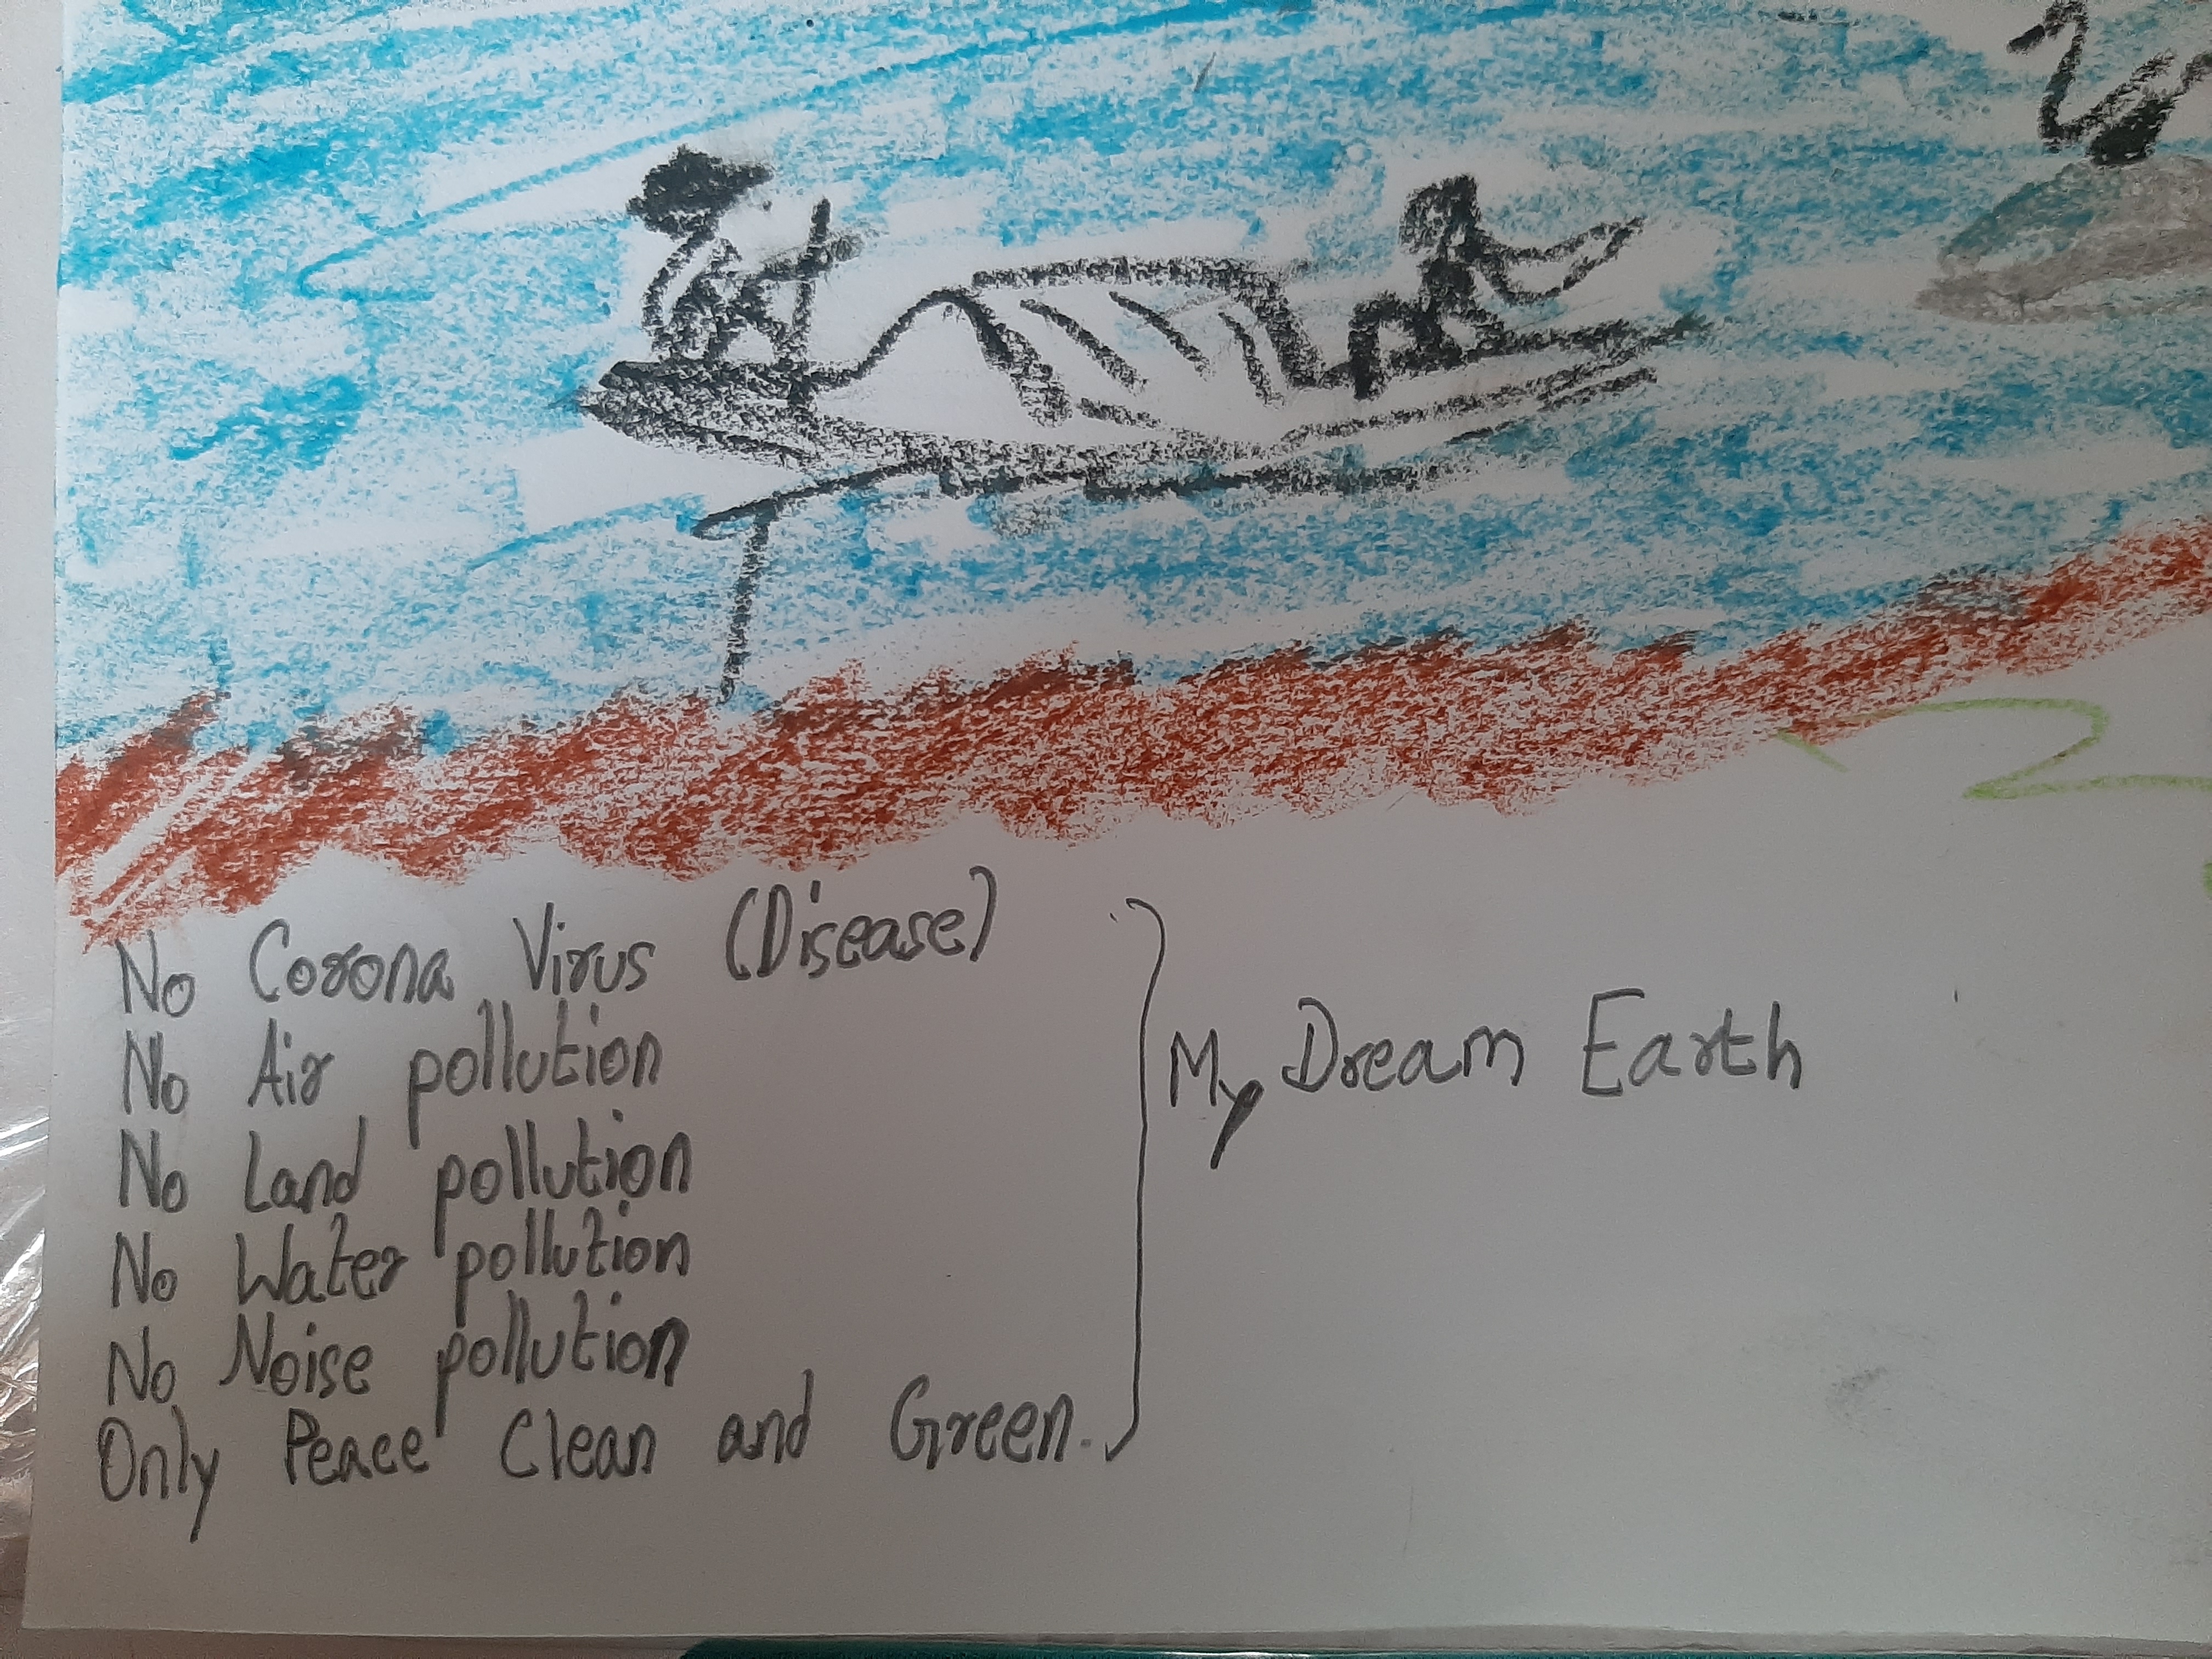 No Corona Virus (Disease)
No Air pollution
No Land pollution
No Water pollution
No Noise pollution
Only Peace Clean and Green.
My Dream Earth